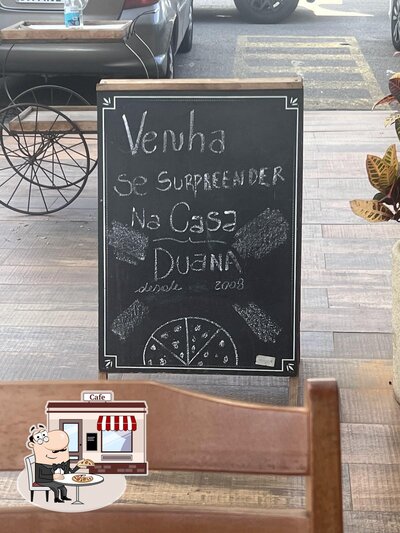 Venha
Se SURPREENDER
Na Casa
DuaNA
desde 2008
Cafe